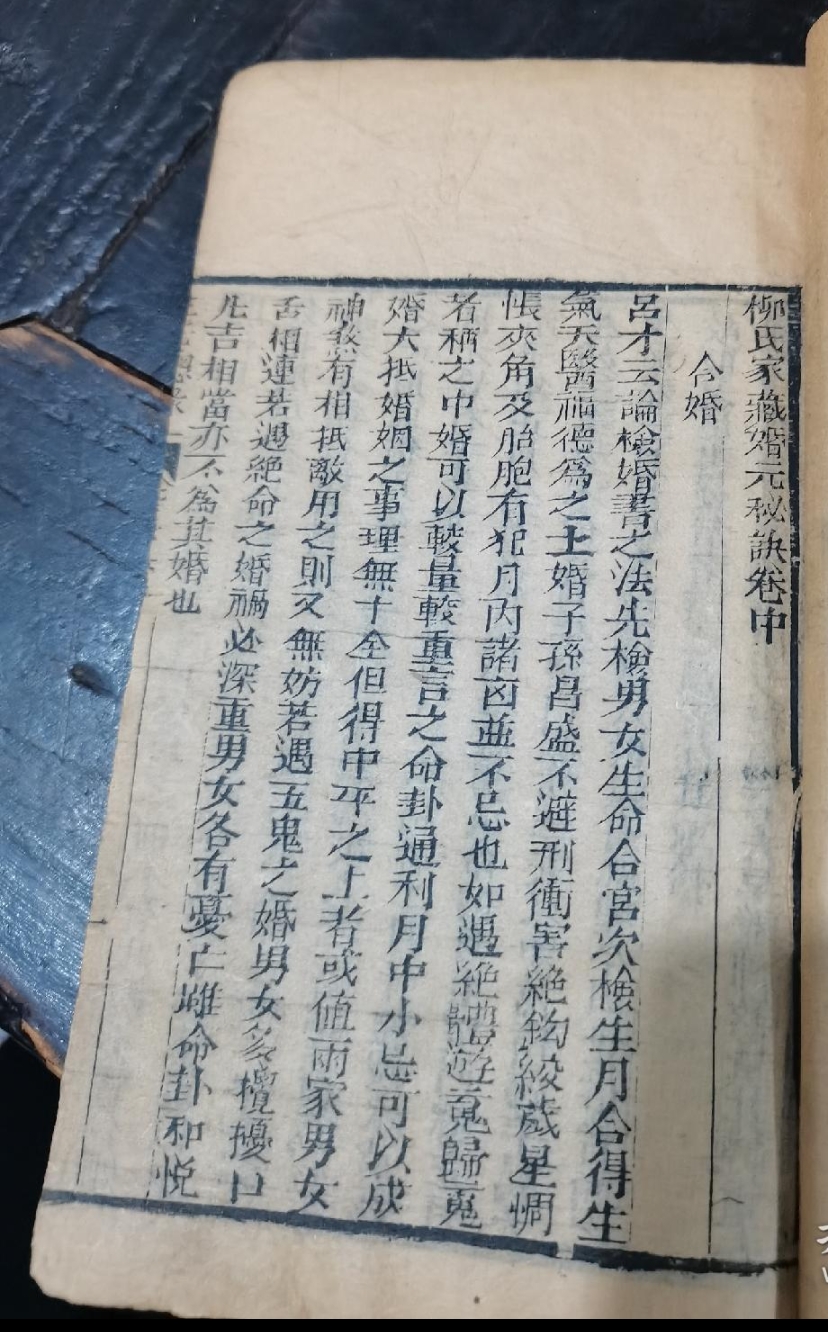 柳氏家藏婚元秘訣卷中
合婚
呂才云論檢婚書之法先檢男女生命合宮次檢生月合得生
氣天醫福德為之上婚子孫昌盛不避刑衝害絶鈎絞歲星惆
悵夾角及胎胞有犯月內諸凶並不忌也如遇絶體遊䰟歸䰟
者稱之中婚可以較量輕重言之命卦通利月中小忌可以成
婚大抵婚姻之事理無十全但得中平之上者或值兩家男女
神煞有相抵敵用之則又無妨若遇五鬼之婚男女多攪擾口
舌相連若遇絶命之婚禍必深重男女各有憂亡雖命卦和悅
凡吉相當亦不為其婚也